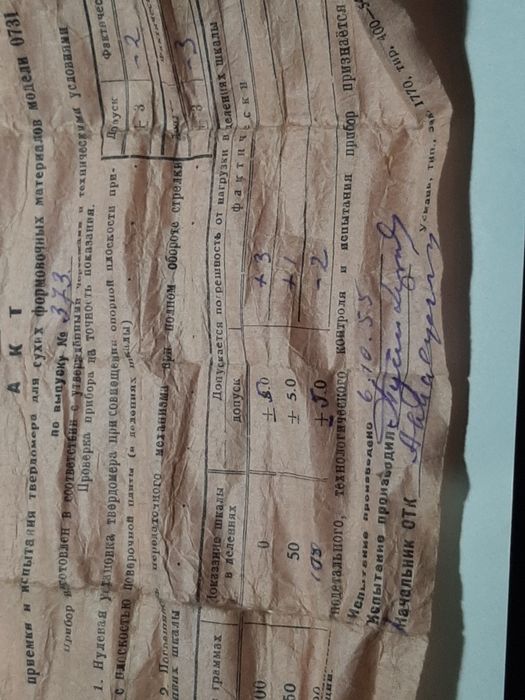 АКТ
приемки и испытания твердомера для сухих формовочных материалов модели 0731
по выпуску № 373
прибор изготовлен в соответствии с утвержденными чертежами и техническими условиями
Проверка прибора на точность показания.
Допуск Фактичес
1. Нулевая установка твердомера при совмещении опорной плоскости при-
с плоскостью поверочной плиты (в делениях шкалы) ± 3 -2
2. передаточного механизма при полном обороте стрелки
шкалы ± 3 -3
граммах Показание шкалы в делениях Допускается погрешность от нагрузки в делениях шкалы
допуск фактически
00 0 ± 5.0 +3
50 50 ± 5.0 +1
100 ± 5.0 -2
подетального, технологического контроля и испытания прибор признаётся
Испытание произведено 6/10.55
Испытание производил
Начальник ОТК
Усмань, тип., 1770, тир. 400